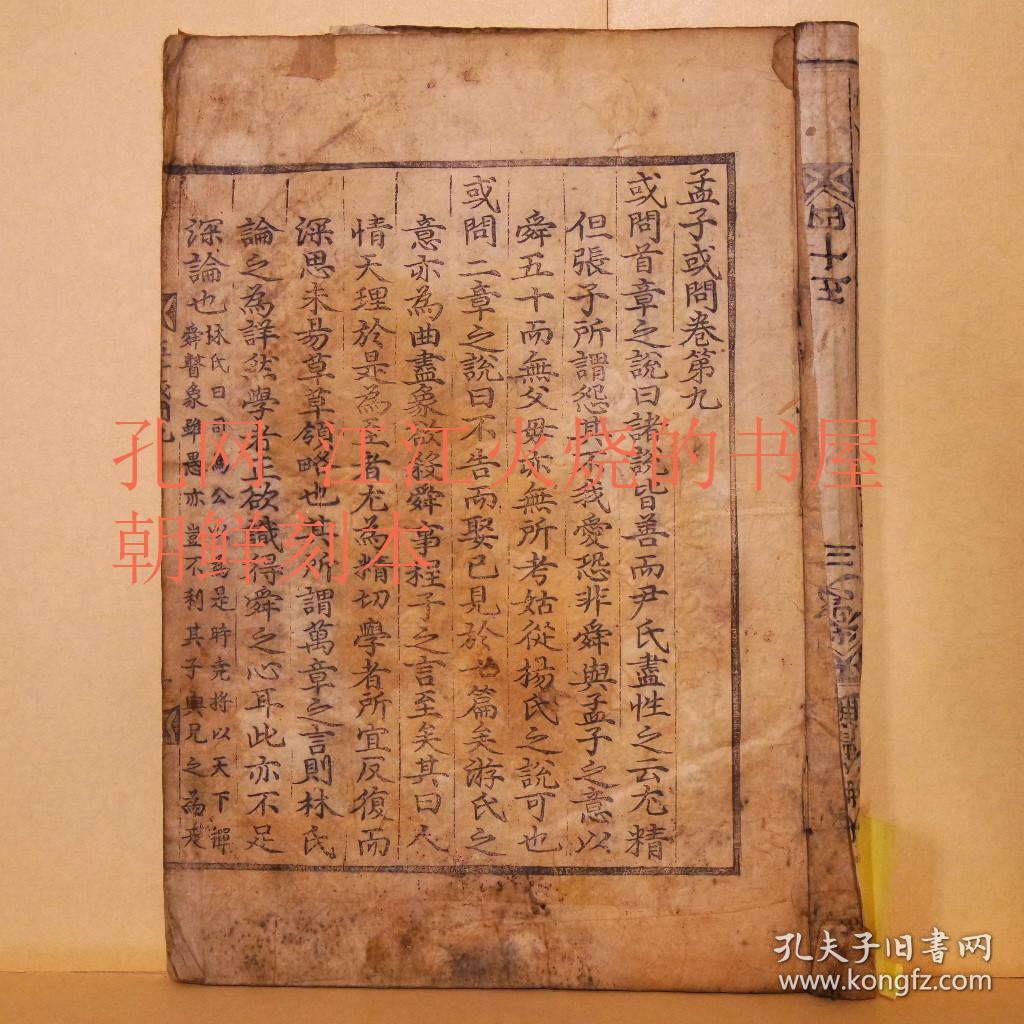 孟子或問卷第九
或問首章之說曰諸說皆善而尹氏盡性之云尤精
但張子所謂怨其不我愛恐非舜與孟子之意以
舜五十而無父母亦無所考姑從楊氏之說可也
或問二章之說曰不告而娶已見於七篇矣游氏之
意亦為曲盡象欲殺舜事程子之言至矣其曰人
情天理於是為至者尤為精切學者所宜反復而
深思未易草草領略也其所謂萬章之言則林氏
論之為詳然學者正欲識得舜之心耳此亦不足
深論也
林氏曰司馬公以為是時堯將以天下
舜瞽象雖愚亦豈不利其子與兄之為天
四十五
三
孔网 江江火烧的书屋
朝鲜刻本
孔夫子旧书网
www.kongfz.com